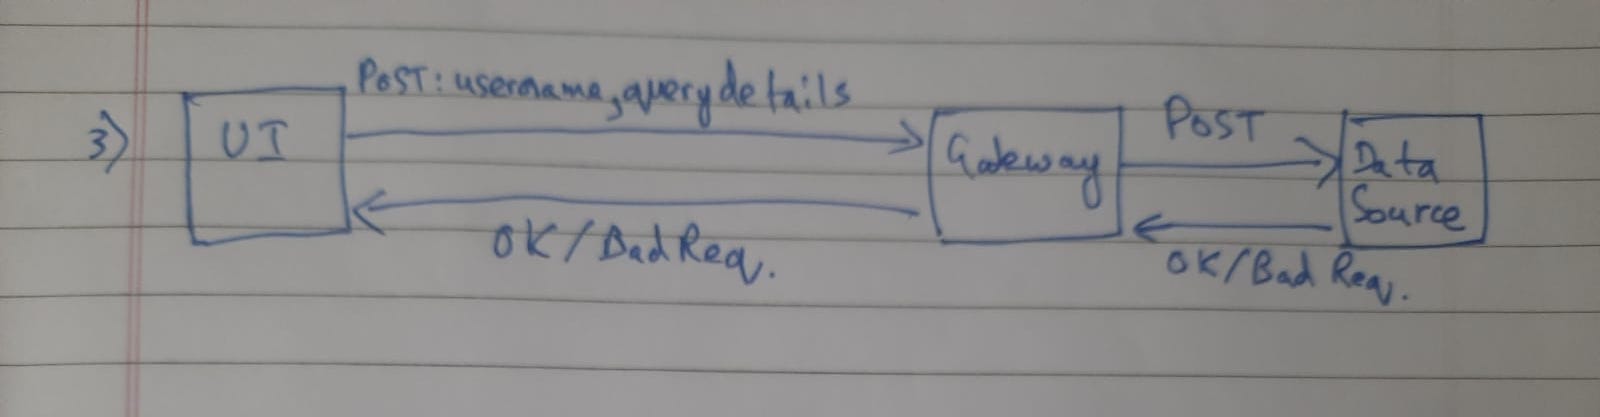 3)
UI
POST: username, query details
OK/Bad Req.
Gateway
POST
OK/Bad Req.
Data
Source